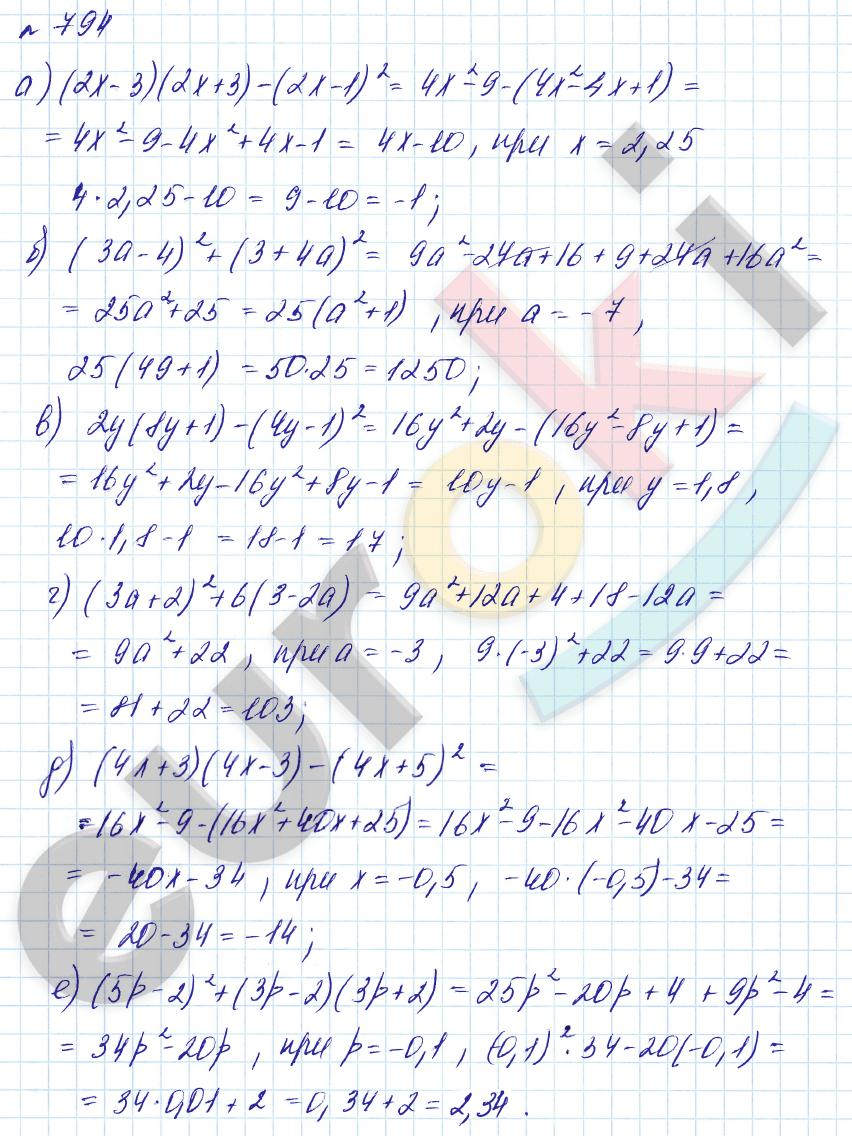 № 794
а) (2x-3)(2x+3)-(2x-1)² = 4x²-9-(4x²-4x+1) =
= 4x²-9-4x²+4x-1 = 4x-10, при x = 2,25
4·2,25-10 = 9-10 = -1;
б) (3a-4)²+(3+4a)² = 9a²-24a+16+9+24a+16a² =
= 25a²+25 = 25(a²+1), при a = -7,
25(49+1) = 50·25 = 1250;
в) 2y(8y+1)-(4y-1)² = 16y²+2y-(16y²-8y+1) =
= 16y²+2y-16y²+8y-1 = 10y-1, при y = 1,8,
10·1,8-1 = 18-1 = 17;
г) (3a+2)²+6(3-2a) = 9a²+12a+4+18-12a =
= 9a²+22, при a = -3, 9·(-3)²+22 = 9·9+22 =
= 81+22 = 103;
д) (4x+3)(4x-3)-(4x+5)² =
= 16x²-9-(16x²+40x+25) = 16x²-9-16x²-40x-25 =
= -40x-34, при x = -0,5, -40·(-0,5)-34 =
= 20-34 = -14;
е) (5p-2)²+(3p-2)(3p+2) = 25p²-20p+4+9p²-4 =
= 34p²-20p, при p = -0,1, (-0,1)²·34-20(-0,1) =
= 34·0,01+2 = 0,34+2 = 2,34.
euroki